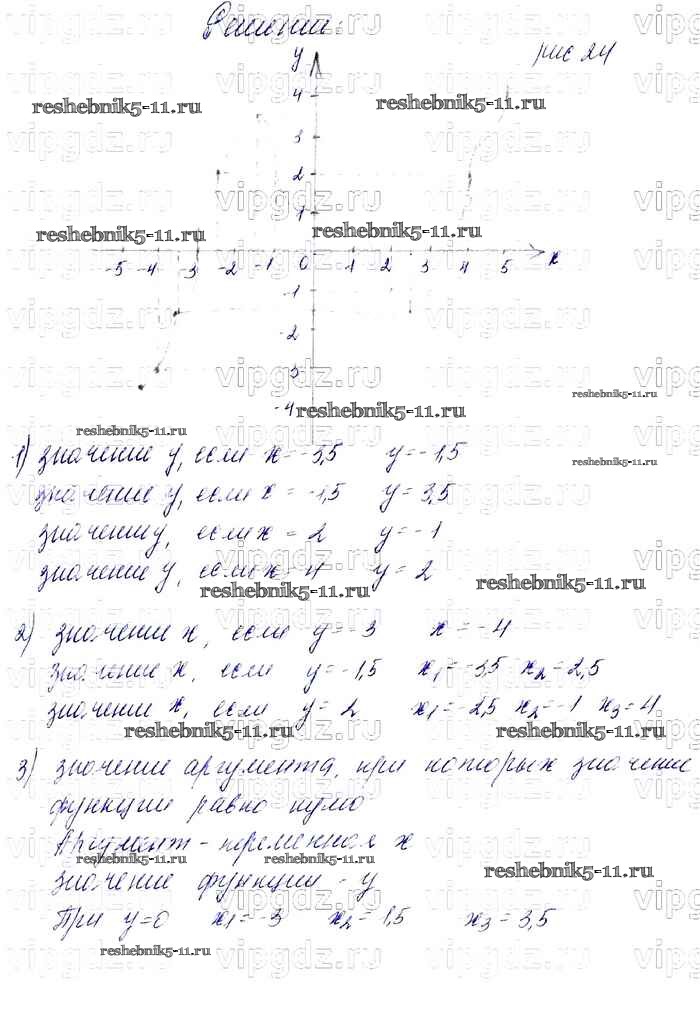 Решение:
рис 24
y
4
3
2
1
-5 -4 -3 -2 -1 0 1 2 3 4 5 x
-1
-2
3
-4
1) значение y, если x = -3,5 y = -1,5
значение y, если x = -1,5 y = 3,5
значение y, если x = 2 y = -1
значение y, если x = 4 y = 2
2) значение x, если y = -3 x = -4
значение x, если y = -1,5 x1 = -3,5 x2 = 2,5
значение x, если y = 2 x1 = -2,5 x2 = -1 x3 = 4
3) значение аргумента, при которых значение
функции равно нулю
Аргумент - переменная x
значение функции - y
При y=0 x1 = -3 x2 = 1,5 x3 = 3,5
reshebnik5-11.ru
vipgdz.ru